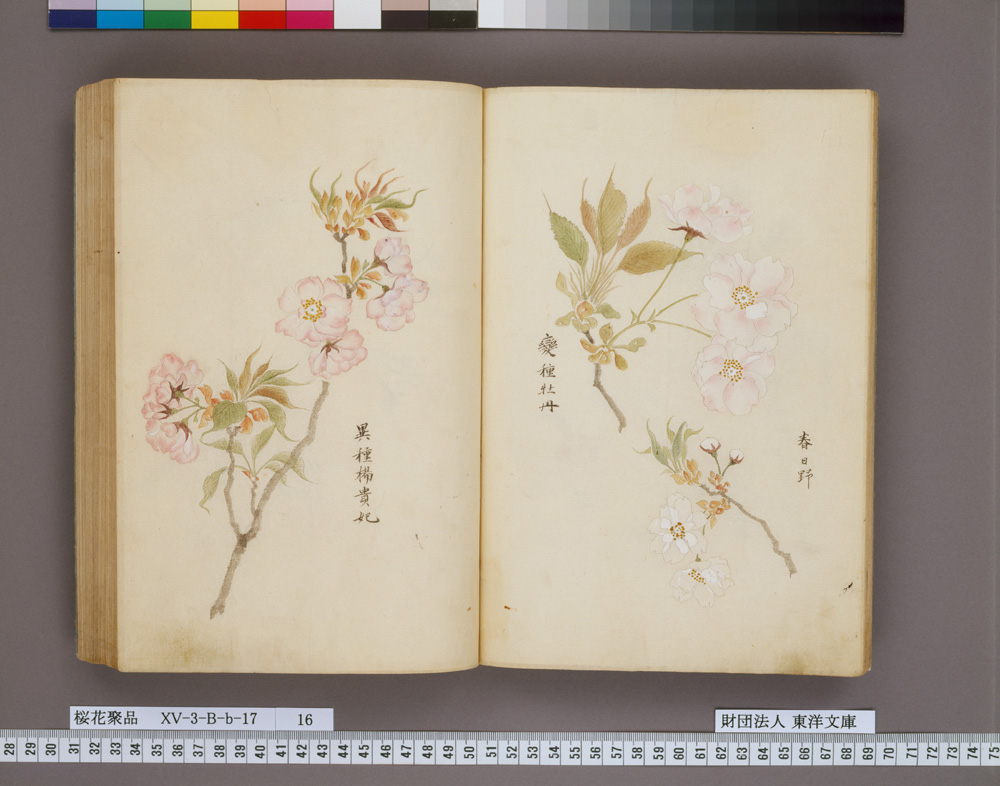 變種牡丹
春日野
異種楊貴妃
桜花聚品 XV-3-B-b-17 16
財団法人 東洋文庫
28 29 30 31 32 33 34 35 36 37 38 39 40 41 42 43 44 45 46 47 48 49 50 51 52 53 54 55 56 57 58 59 60 61 62 63 64 65 66 67 68 69 70 71 72 73 74 75